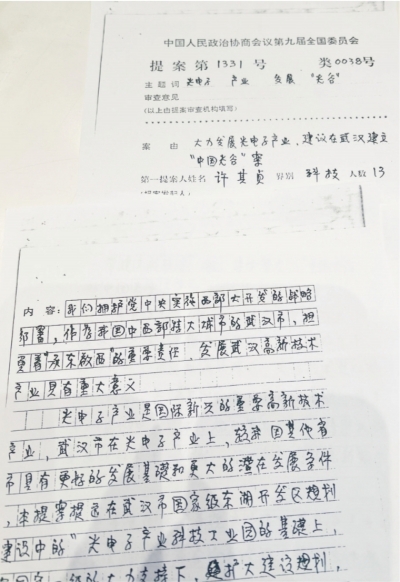 中国人民政治协商会议第九届全国委员会
提案第1331号 类0038号
主题词 光电子 产业 发展 "光谷"
审查意见
(以上由提案审查机构填写)
案由 大力发展光电子产业、建议在武汉建立
"中国光谷"案
第一提案人姓名 许其贞 界别 科技 人数 13
内容:我们拥护党中央实施西部大开发的战略
部署,作为我国中西部特大城市的武汉市,担
负着"承东启西"的重要责任,发展武汉高新技术
产业具有重大意义
光电子产业是国际新兴的重要高新技术
产业,武汉市在光电子产业上,较我国其他省
市具有更好的发展基础和更大的潜在发展条件
,本提案提出在武汉市国家级东湖开发区规划
建设中的"光电子产业科技工业园的基础上,
的大力支持下,扩大建设规划,